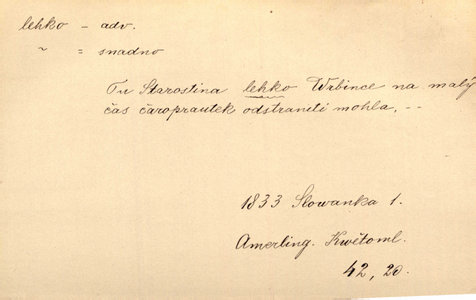 lehko – adv.
~ = snadno
Tu Starostina lehko Wrbince na malý
čas čaroprautek odstraniti mohla, --
1833 Slowanka 1.
Amerling. Kwětoml.
42, 20.